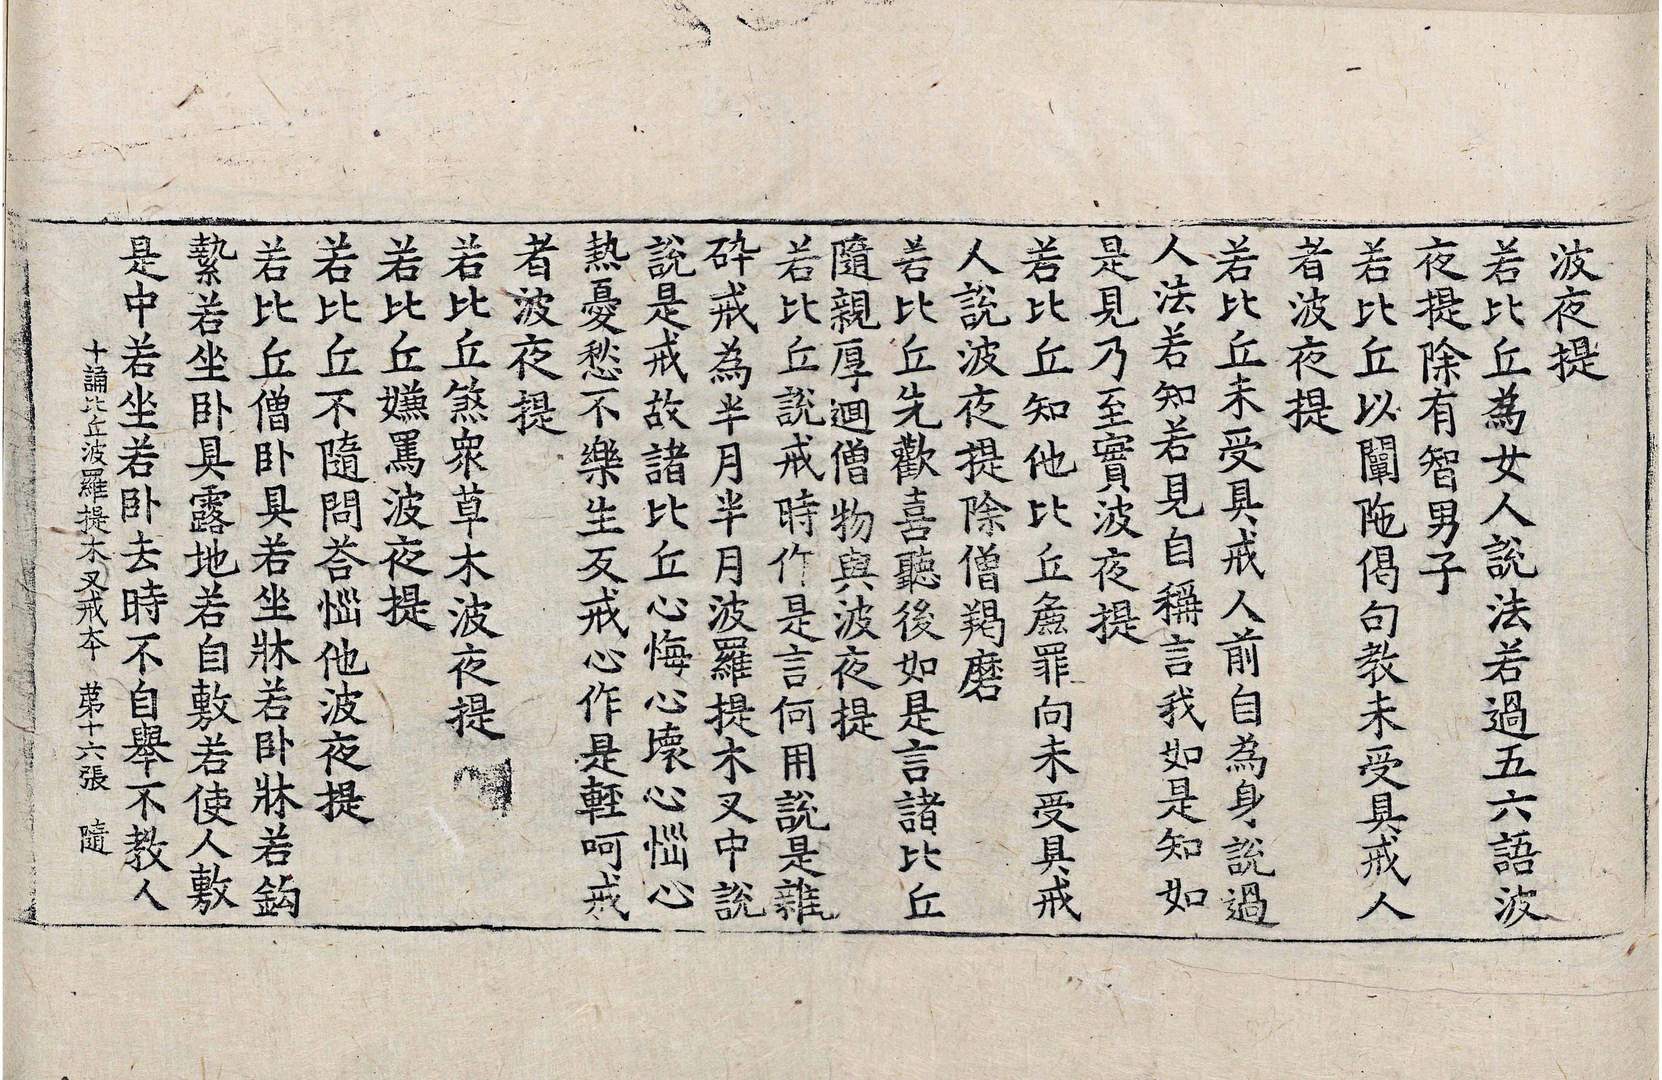 波夜提
若比丘為女人說法若過五六語波
夜提除有智男子
若比丘以闡陁偈句教未受具戒人
者波夜提
若比丘未受具戒人前自為身說過
人法若知若見自稱言我如是知如
是見乃至實波夜提
若比丘知他比丘麁罪向未受具戒
人說波夜提除僧羯磨
若比丘先歡喜聽後如是言諸比丘
隨親厚迴僧物與波夜提
若比丘說戒時作是言何用說是雜
碎戒為半月半月波羅提木叉中說
說是戒故諸比丘心悔心壞心惱心
熱憂愁不樂生反戒心作是輕呵戒
者波夜提
若比丘煞衆草木波夜提
若比丘嫌罵波夜提
若比丘不隨問荅惱他波夜提
若比丘僧卧具若坐牀若卧牀若鈎
縶若坐卧具露地若自敷若使人敷
是中若坐若卧去時不自舉不教人
十誦比丘波羅提木叉戒夲 苐十六張 隨